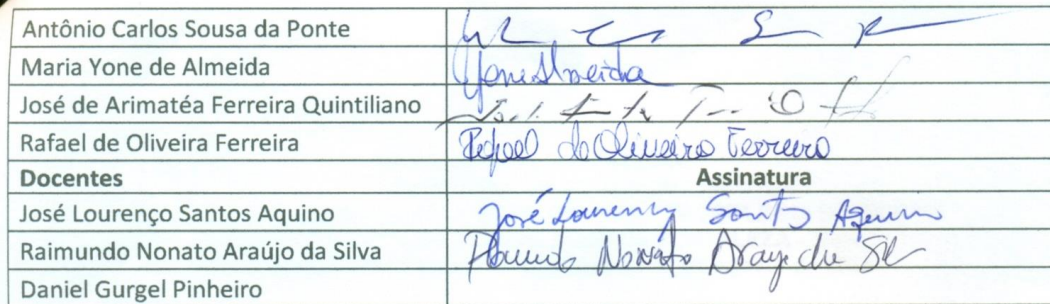 Antônio Carlos Sousa da Ponte
Maria Yone de Almeida Yone Almeida
José de Arimatéa Ferreira Quintiliano
Rafael de Oliveira Ferreira Rafael de Oliveira Ferreira
Docentes Assinatura
José Lourenço Santos Aquino José Lourenço Santos Aquino
Raimundo Nonato Araújo da Silva Nonato
Daniel Gurgel Pinheiro